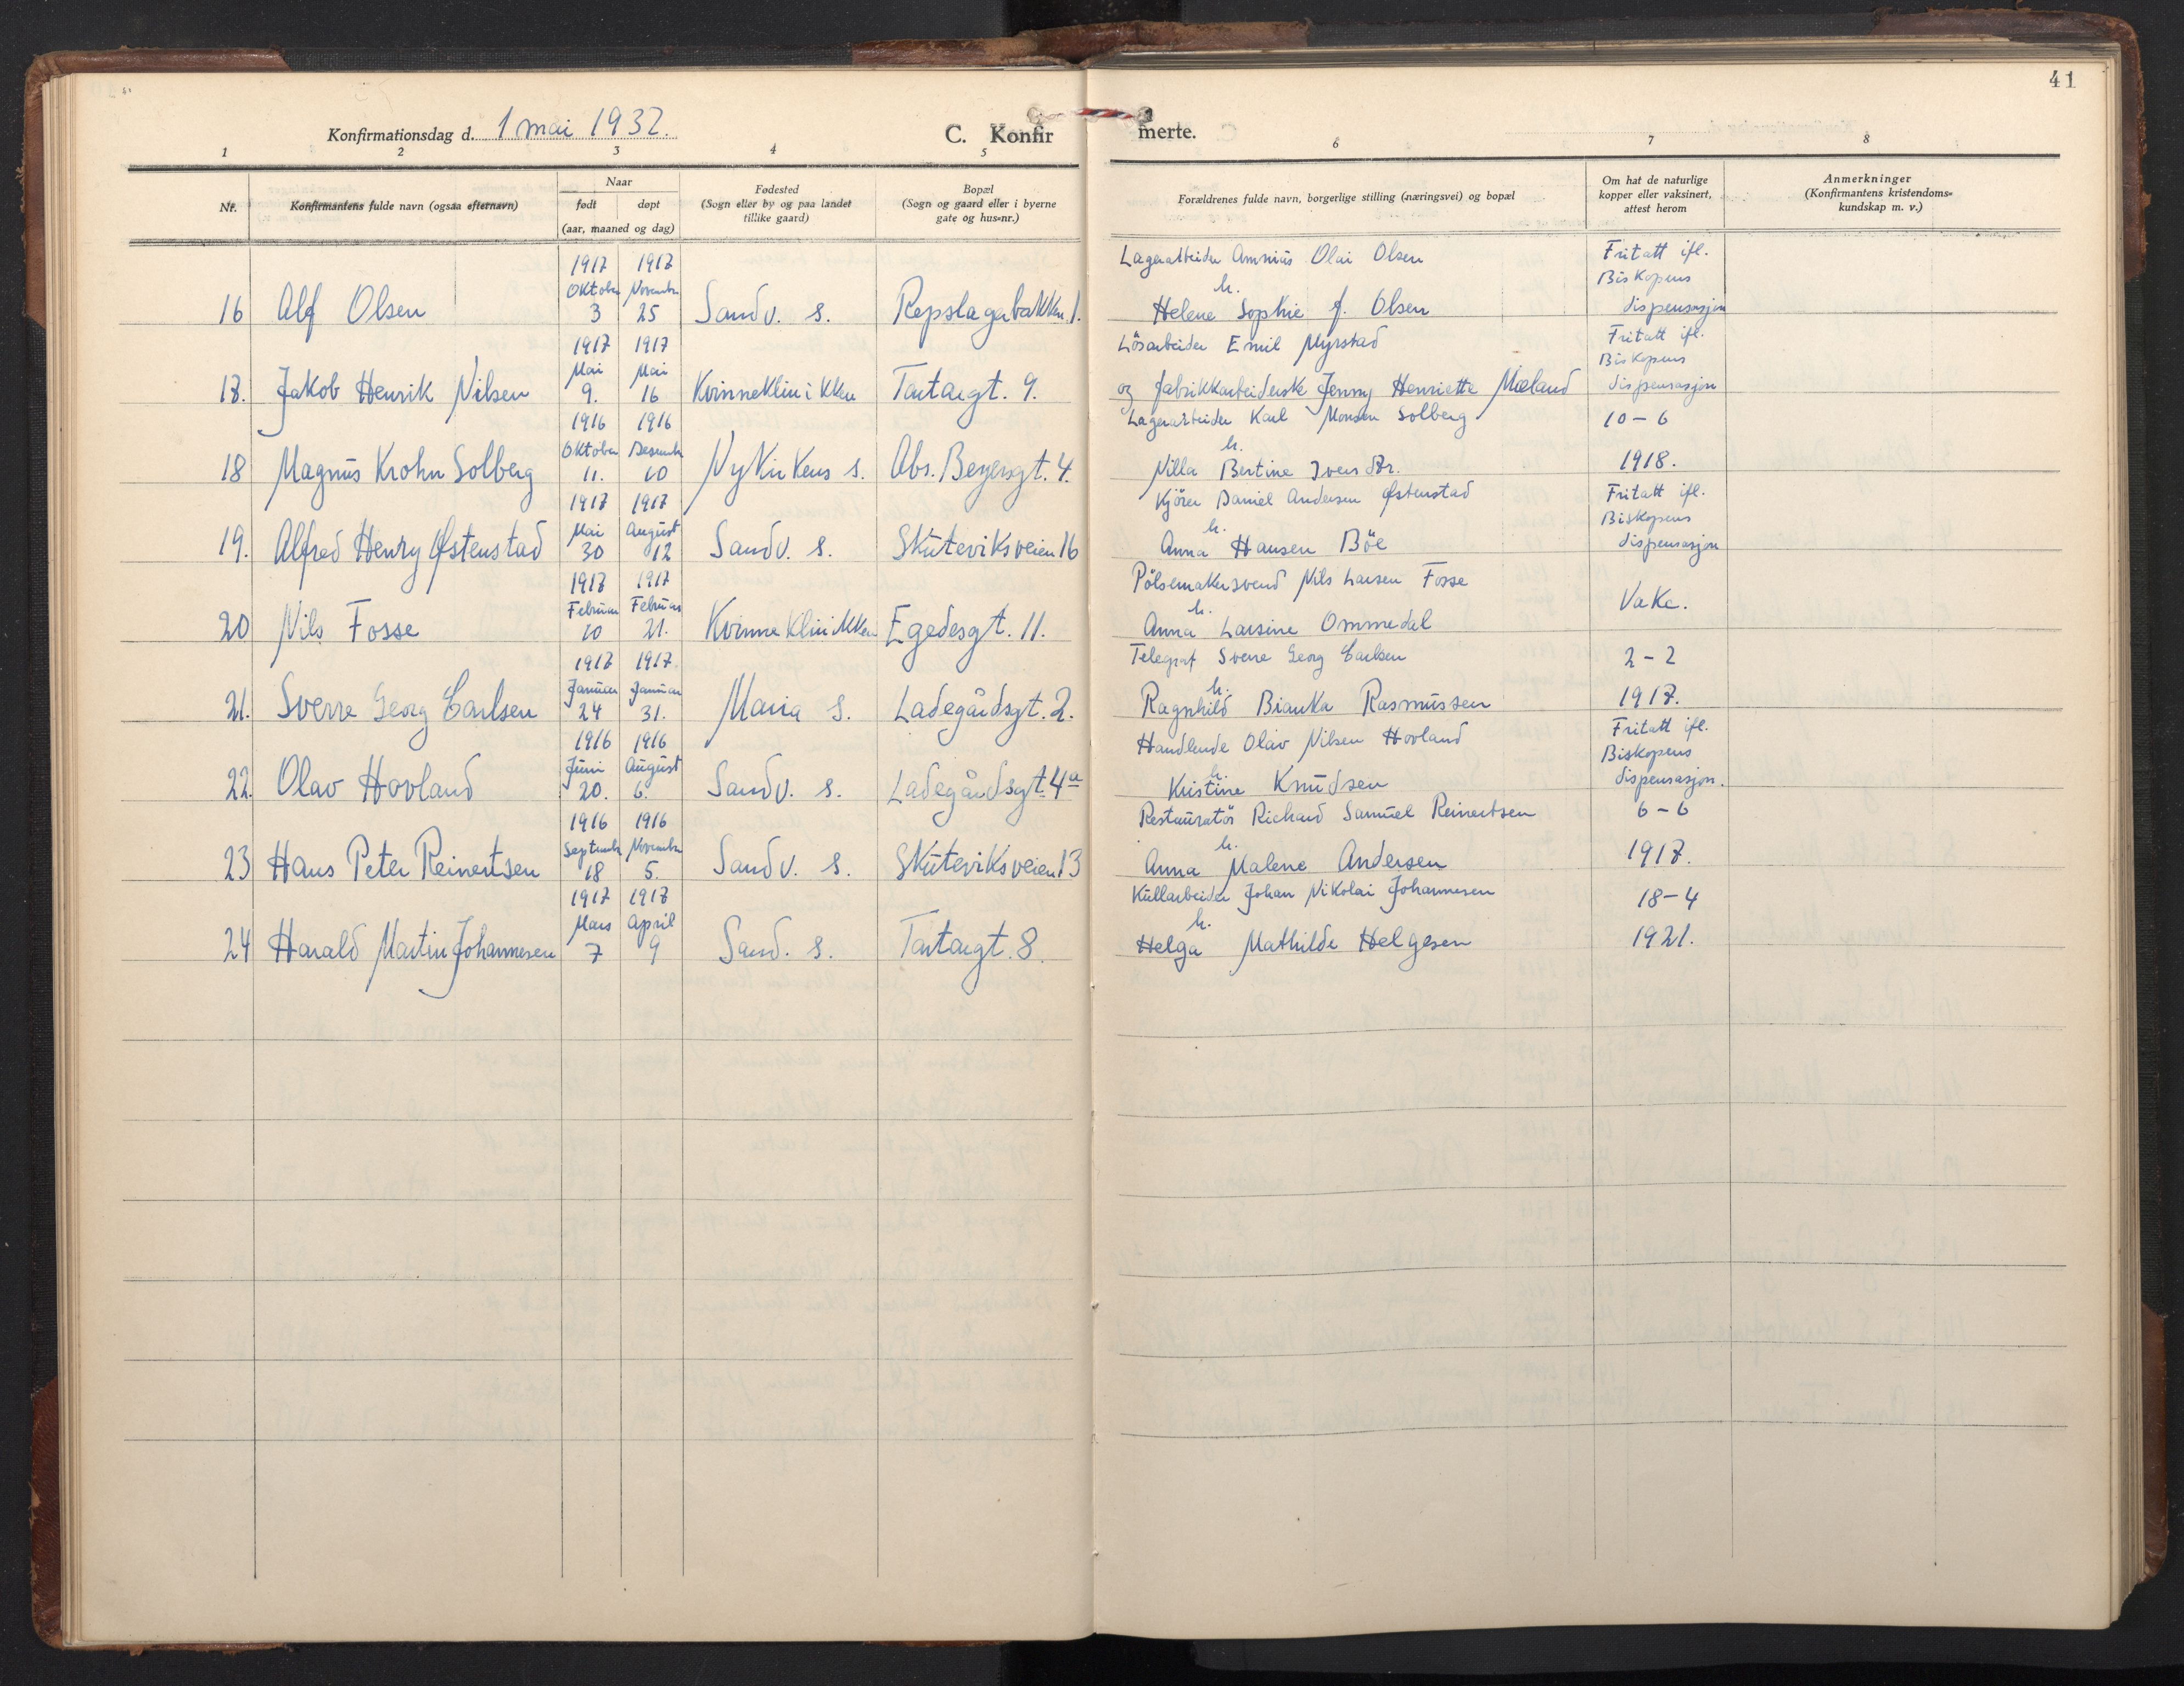 41
Konfirmationsdag d. 1 mai 1932.
C. Konfirmerte.
1 2 3 4 5 6 7 8
Nr.
Konfirmantens fulde navn (ogsaa efternavn)
Naar
født døpt
(aar, maaned og dag)
Fødested
(Sogn eller by og paa landet
tillike gaard)
Bopæl
(Sogn og gaard eller i byerne
gate og hus=nr.)
Forældrenes fulde navn, borgerlige stilling (næringsvei) og bopæl
Om hat de naturlige
kopper eller vaksinert,
attest herom
Anmerkninger
(Konfirmantens kristendoms=
kundskap m. v.)
1917 1917 Lagerarbeider Olai Olsen Fritatt ifl.
Oktober November h. Biskopens
16 Alf Olsen 3 25 Sandv. s. Repslagerbakken 1. Helene Sophie f. Olsen dispensasjon
1917 1917 Lösarbeider Emil Myrstad Fritatt ifl.
Mai Mai Biskopens
17. Jakob Henrik Nilsen 9. 16 Kvinneklinikken Tartargt. 9. og fabrikkarbeiderske Jenny Henriette Mæland dispensasjon
1916 1916 Lagerarbeider Karl Monsen Solberg 10-6
Oktober Desember h.
18 Magnus Krohn Solberg 11. 10 Nykirkens s. Abs. Beyersgt. 4. Nilla Bertine Iversdtr. 1918.
1917 1917 Kjörer Daniel Andersen Østenstad Fritatt ifl.
Mai August h. Biskopens
19. Alfred Henry Østenstad 30 12 Sandv. s. Skuteviksveien 16 Anna Hansen Böe dispensasjon
1917 1917 Pölsemakersvend Nils Larsen Fosse
Februar Februar h. Vakc.
20 Nils Fosse 10 21. Kvinneklinikken Egedesgt. 11. Anna Larsine Ommedal
1917 1917. Telegraf Sverre Georg Carlsen 2-2
Januar Januar h.
21. Sverre Georg Carlsen 24 31. Maria s. Ladegårdsgt. 2. Ragnhild Bianka Rasmussen 1917.
1916 1916 Handlende Olav Nilsen Hovland Fritatt ifl.
Juni August h. Biskopens
22. Olav Hovland 20. 6. Sandv. s. Ladegårdsgt. 4a Kristine Knudsen dispensasjon.
1916 1916 Restauratör Richard Samuel Reinertsen 6-6
September November h.
23 Hans Peter Reinertsen 18 5. Sandv. s. Skuteviksveien 13 Anna Malene Andersen 1917.
1917 1917 Kullarbeider Johan Nikolai Johannesen 18-4
Mars April h.
24 Harald Martin Johannesen 7 9 Sand. s. Tartargt. 8. Helga Mathilde Helgesen 1921.